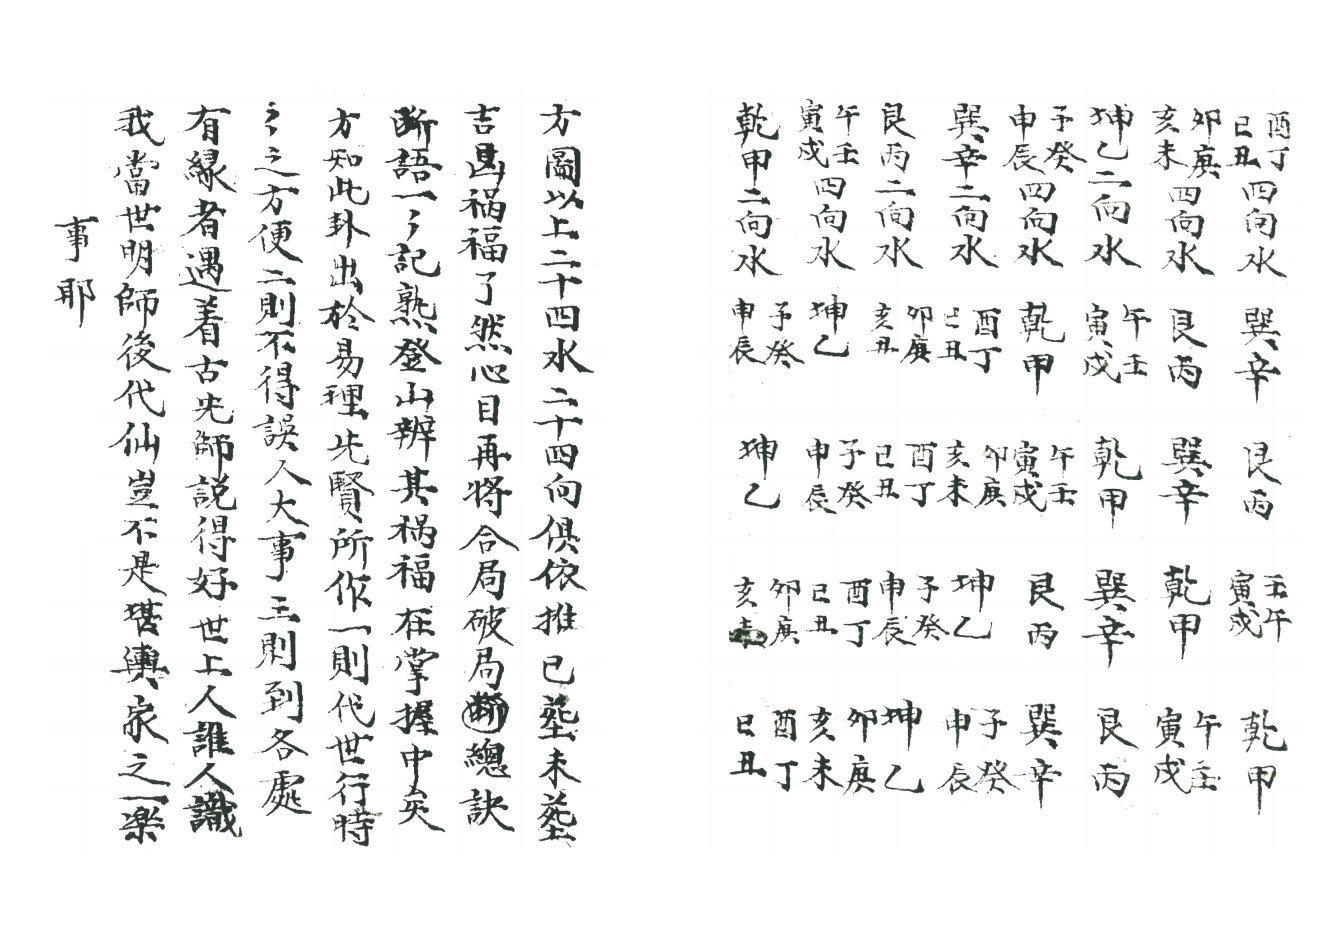 酉丁巳丑四向水 巽辛 艮丙 壬午寅戌 乾甲
卯庚亥未四向水 艮丙 巽辛 乾甲 午壬寅戌
坤乙二向水 午壬寅戌 乾甲 巽辛 艮丙
子癸申辰四向水 乾甲 午壬寅戌 艮丙 巽辛
巽辛二向水 酉丁巳丑 卯庚亥未 坤乙 子癸申辰
艮丙二向水 卯庚亥丑 酉丁巳丑 子癸申辰 坤乙
午壬寅戌四向水 坤乙 子癸申辰 酉丁巳丑 卯庚亥未
乾甲二向水 子癸申辰 坤乙 卯庚亥未 酉丁巳丑
方圖以上二十四水二十四向俱依推已塟未塟
吉凶祸福了然心目再將合局破局断總訣
断語一々記熟登山辦其祸福在掌握中矣
方知此卦出於易理先賢所作一則代世行時
々之方便二則不得誤人大事三則到各處
有緣者遇着古先師説得好世上人誰人識
我當世明師後代仙豈不是堪輿家之一樂
事耶